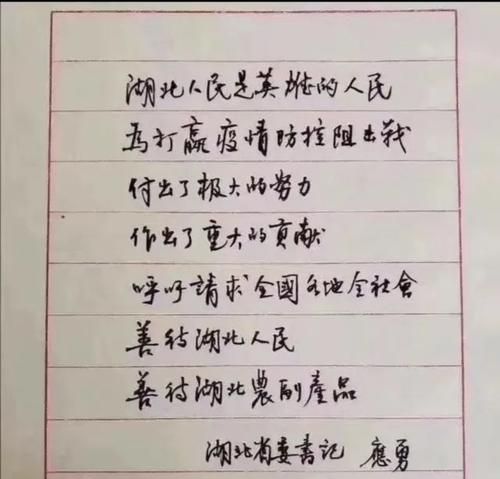 湖北人民是英雄的人民
为打赢疫情防控阻击战
付出了极大的努力
作出了重大的贡献
呼吁請求全國各地全社會
善待湖北人民
善待湖北農副產品
湖北省委書记 應勇